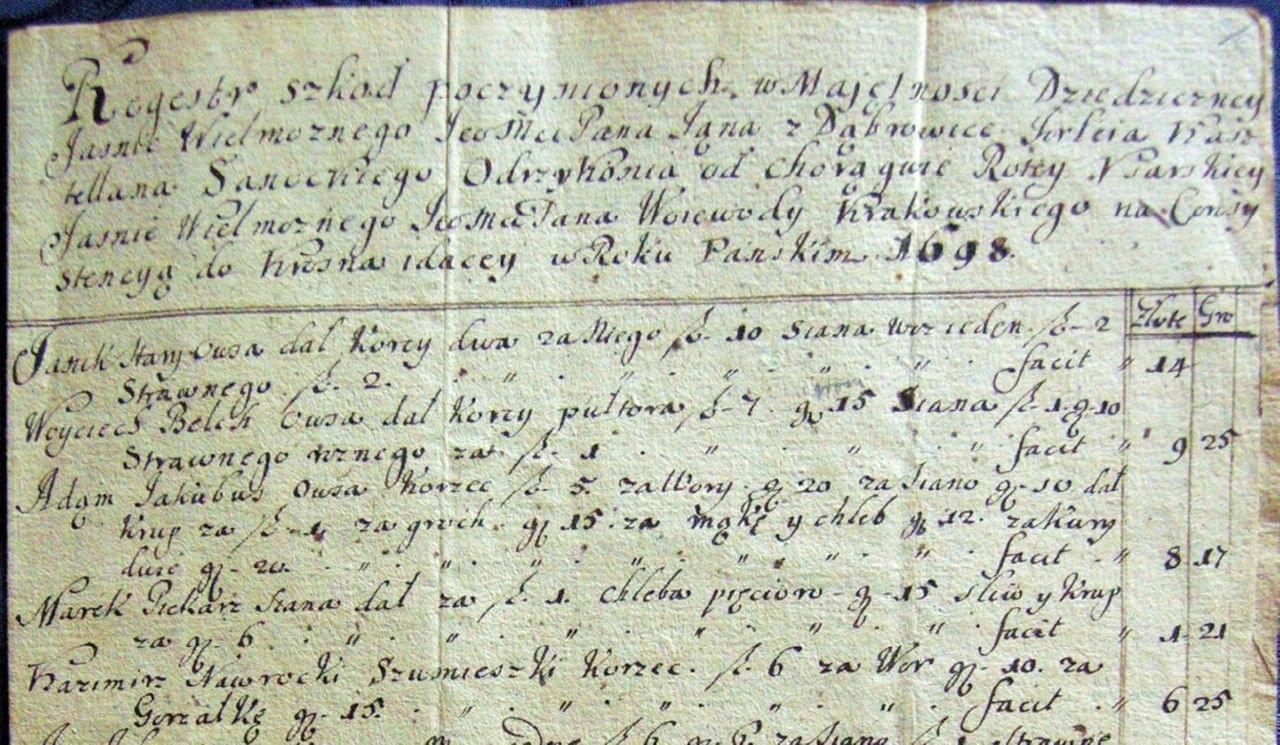 Regestr szkod poczynionych w Majętnosci Dziedziczney
Jasnie Wielmoznego Jeo Mci Pana Jana z Dąbrowice Firleia Kasz
tellana Sanockiego Odrzykonia od Chorągwie Rotey Usarskiey
Jasnie Wielmoznego Jeo Mci Pana Woiewody Krakowskiego na Consy
stencyą do Krosna idącey w Roku Panskim 1698.
Złote Gro
Janek Stary Owsa dał Korcy dwa za Niego f. 10 Siana Woz ieden f. 2
Strawnego f. 2. facit 14
Woyciech Bełch Owsa dał Korcy pułtora f. 7. g. 15 Siana f. 1. g. 10
Strawnego roznego za f. 1 facit 9 25
Adam Jakubus Owsa Korzec f. 5. za Wory g. 20 za Siano g. 10 dał
Krup za f. 1 za groch g. 15. za mąkę y chleb g. 12. za Kury
dwie g. 20. facit 8 17
Marek Piekarz Siana dał za f. 1. chleba pięcioro g. 15 sliw y Krup
za g. 6 facit 1 21
Kazimirz Nawrocki Szumieszki Korzec f. 6 za Wor g. 10. za
Gorzałkę g. 15. facit 6 25